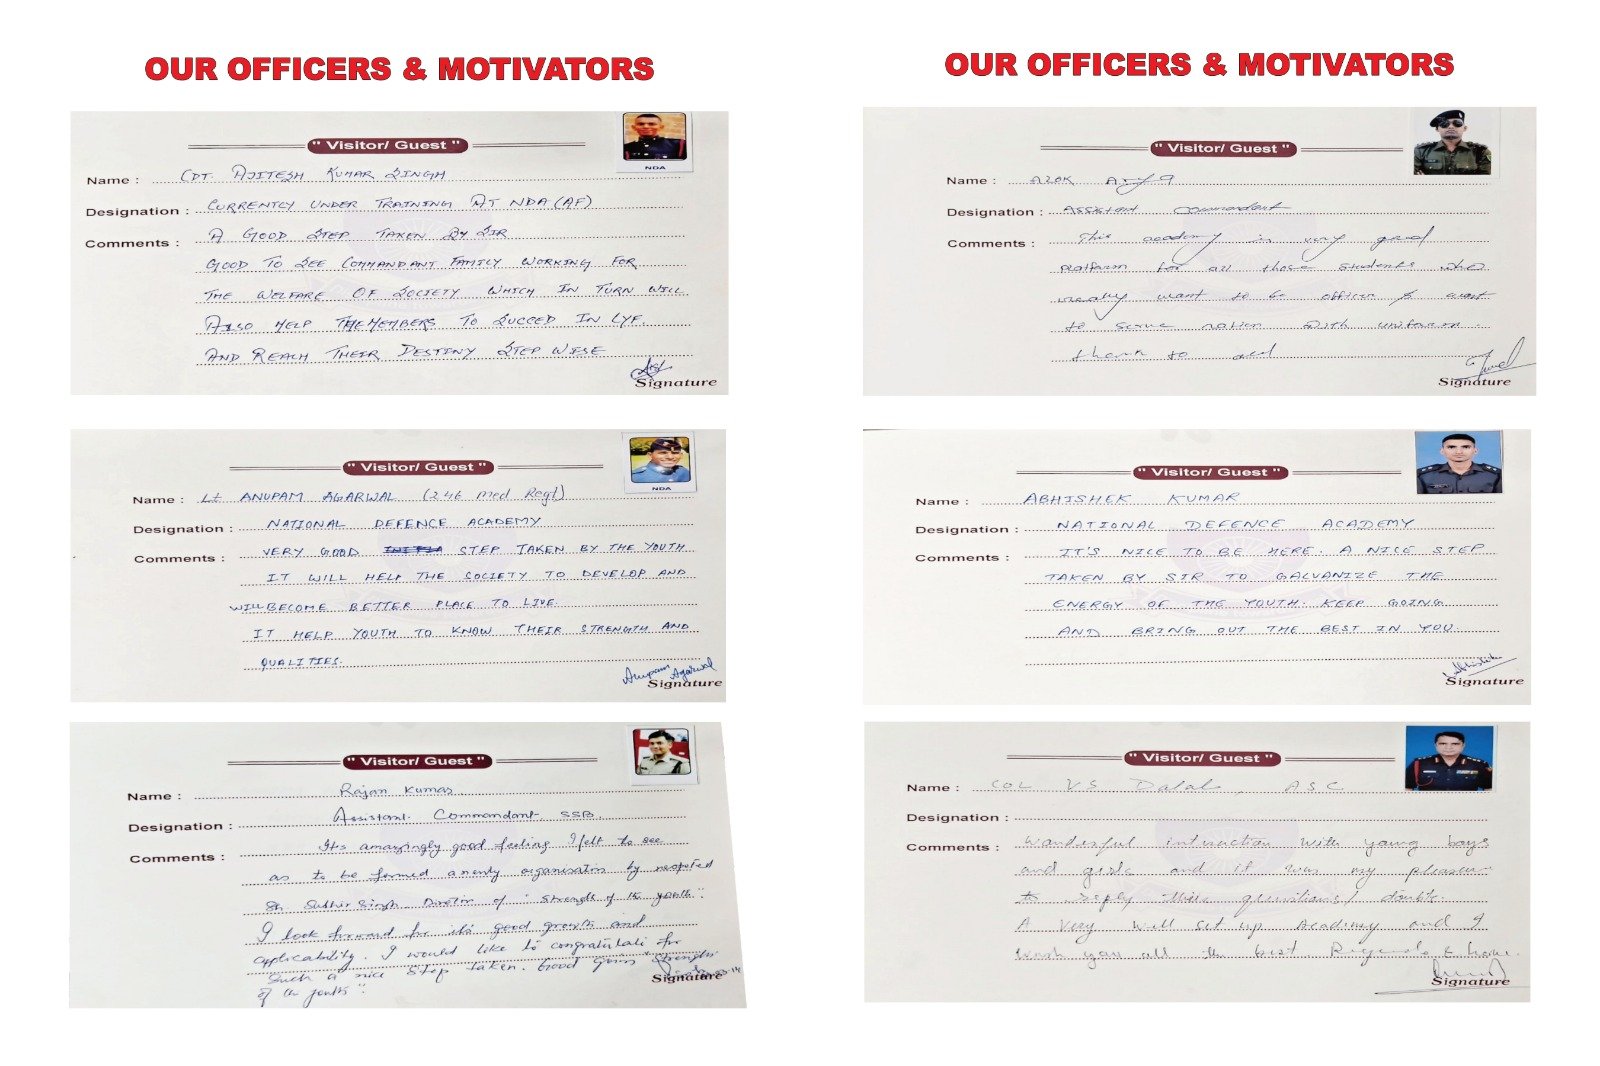 OUR OFFICERS & MOTIVATORS
" Visitor/ Guest "
NDA
Name : CDT. AJITESH KUMAR SINGH
Designation : CURRENTLY UNDER TRAINING AT NDA (AF)
Comments : A GOOD STEP TAKEN BY SIR
GOOD TO SEE COMMANDANT FAMILY WORKING FOR
THE WELFARE OF SOCIETY WHICH IN TURN WILL
ALSO HELP THE MEMBERS TO SUCCED IN LYF.
AND REACH THEIR DESTINY STEP WISE
Signature
" Visitor/ Guest "
NDA
Name : Lt ANUPAM AGARWAL (246 Med Regt)
Designation : NATIONAL DEFENCE ACADEMY
Comments : VERY GOOD STEP TAKEN BY THE YOUTH
IT WILL HELP THE SOCIETY TO DEVELOP AND
WILL BECOME BETTER PLACE TO LIVE.
IT HELP YOUTH TO KNOW THEIR STRENGTH AND
QUALITIES.
Anupam Agarwal
Signature
" Visitor/ Guest "
Name : Rajan Kumar
Designation : Assistant Commandant SSB
Comments : Its amazingly good feeling I felt to see
as to be formed a newly organisation by respected
Sh Sudhir Singh Director of "Strength of the youth".
I look forward for its good growth and
applicability. I would like to congratulate for
Such a nice Step taken. Good Going "Strength
of the youth".
Signature
OUR OFFICERS & MOTIVATORS
" Visitor/ Guest "
Name :
Designation : Assistant Commandant
Comments : This academy is very good
platform for all those students who
really want to be officer & want
to serve nation with uniform.
thank to
Signature
" Visitor/ Guest "
Name : ABHISHEK KUMAR
Designation : NATIONAL DEFENCE ACADEMY
Comments : IT'S NICE TO BE HERE. A NICE STEP
TAKEN BY SIR TO GALVANIZE THE
ENERGY OF THE YOUTH. KEEP GOING
AND BRING OUT THE BEST IN YOU.
Abhishek
Signature
" Visitor/ Guest "
Name : COL VS Dalal, ASC
Designation :
Comments : Wonderful interaction with young boys
and girls and it was my pleasure
to reply their questions/ doubts.
A very well set up Academy and I
wish you all the best
Signature